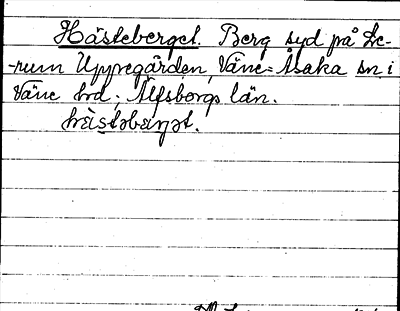 Hästeberget. Berg syd på Le-
-rum Uppregården, Väne-Åsaka sn. i
Väne hd; Älfsborgs län.
hästəbærjət.